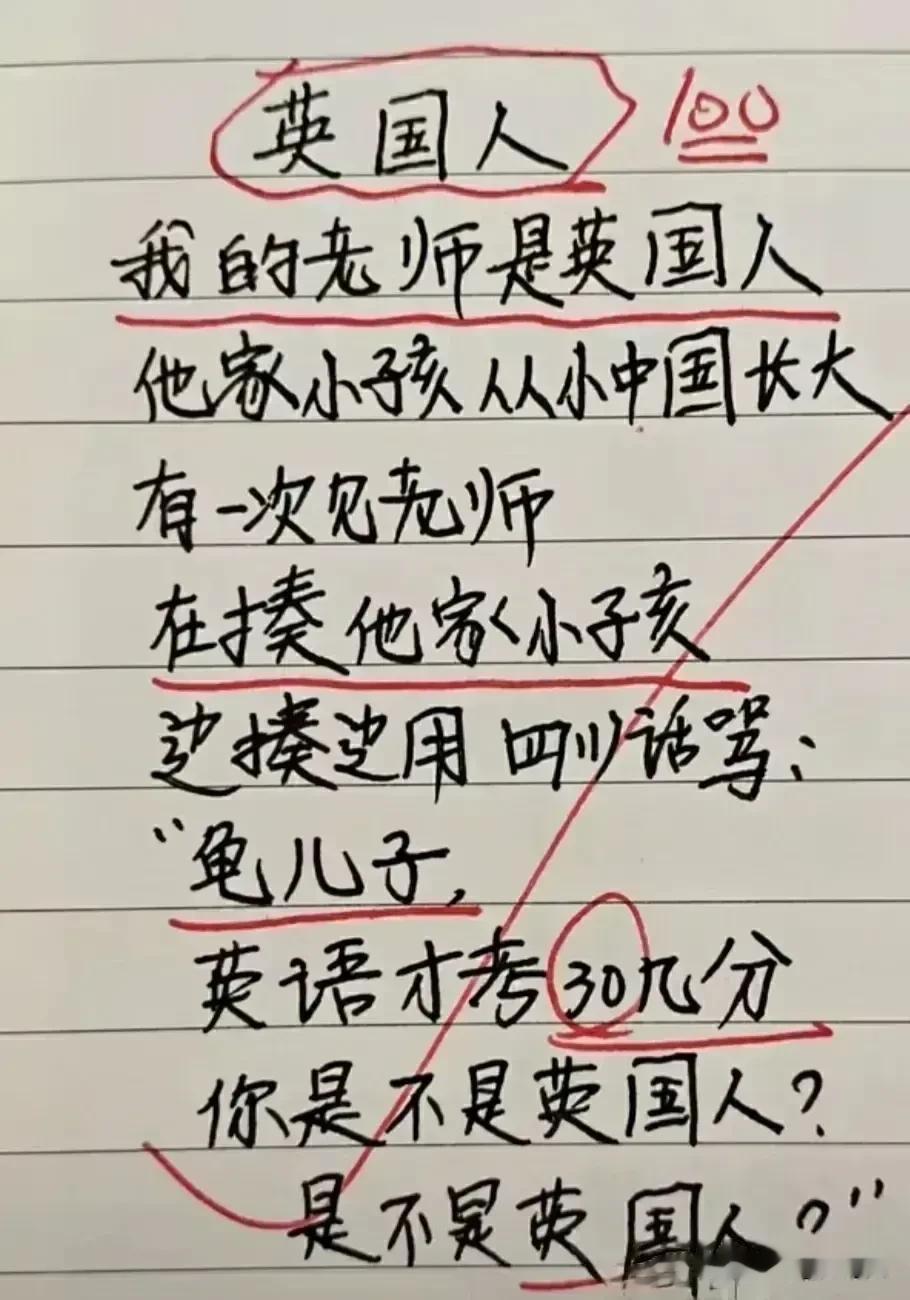 英国人 100
我的老师是英国人
他家小孩从小中国长大
有一次见老师
在揍他家小子孩
边揍边用四川话骂：
“龟儿子，
英语才考30几分
你是不是英国人？
是不是英国人？”